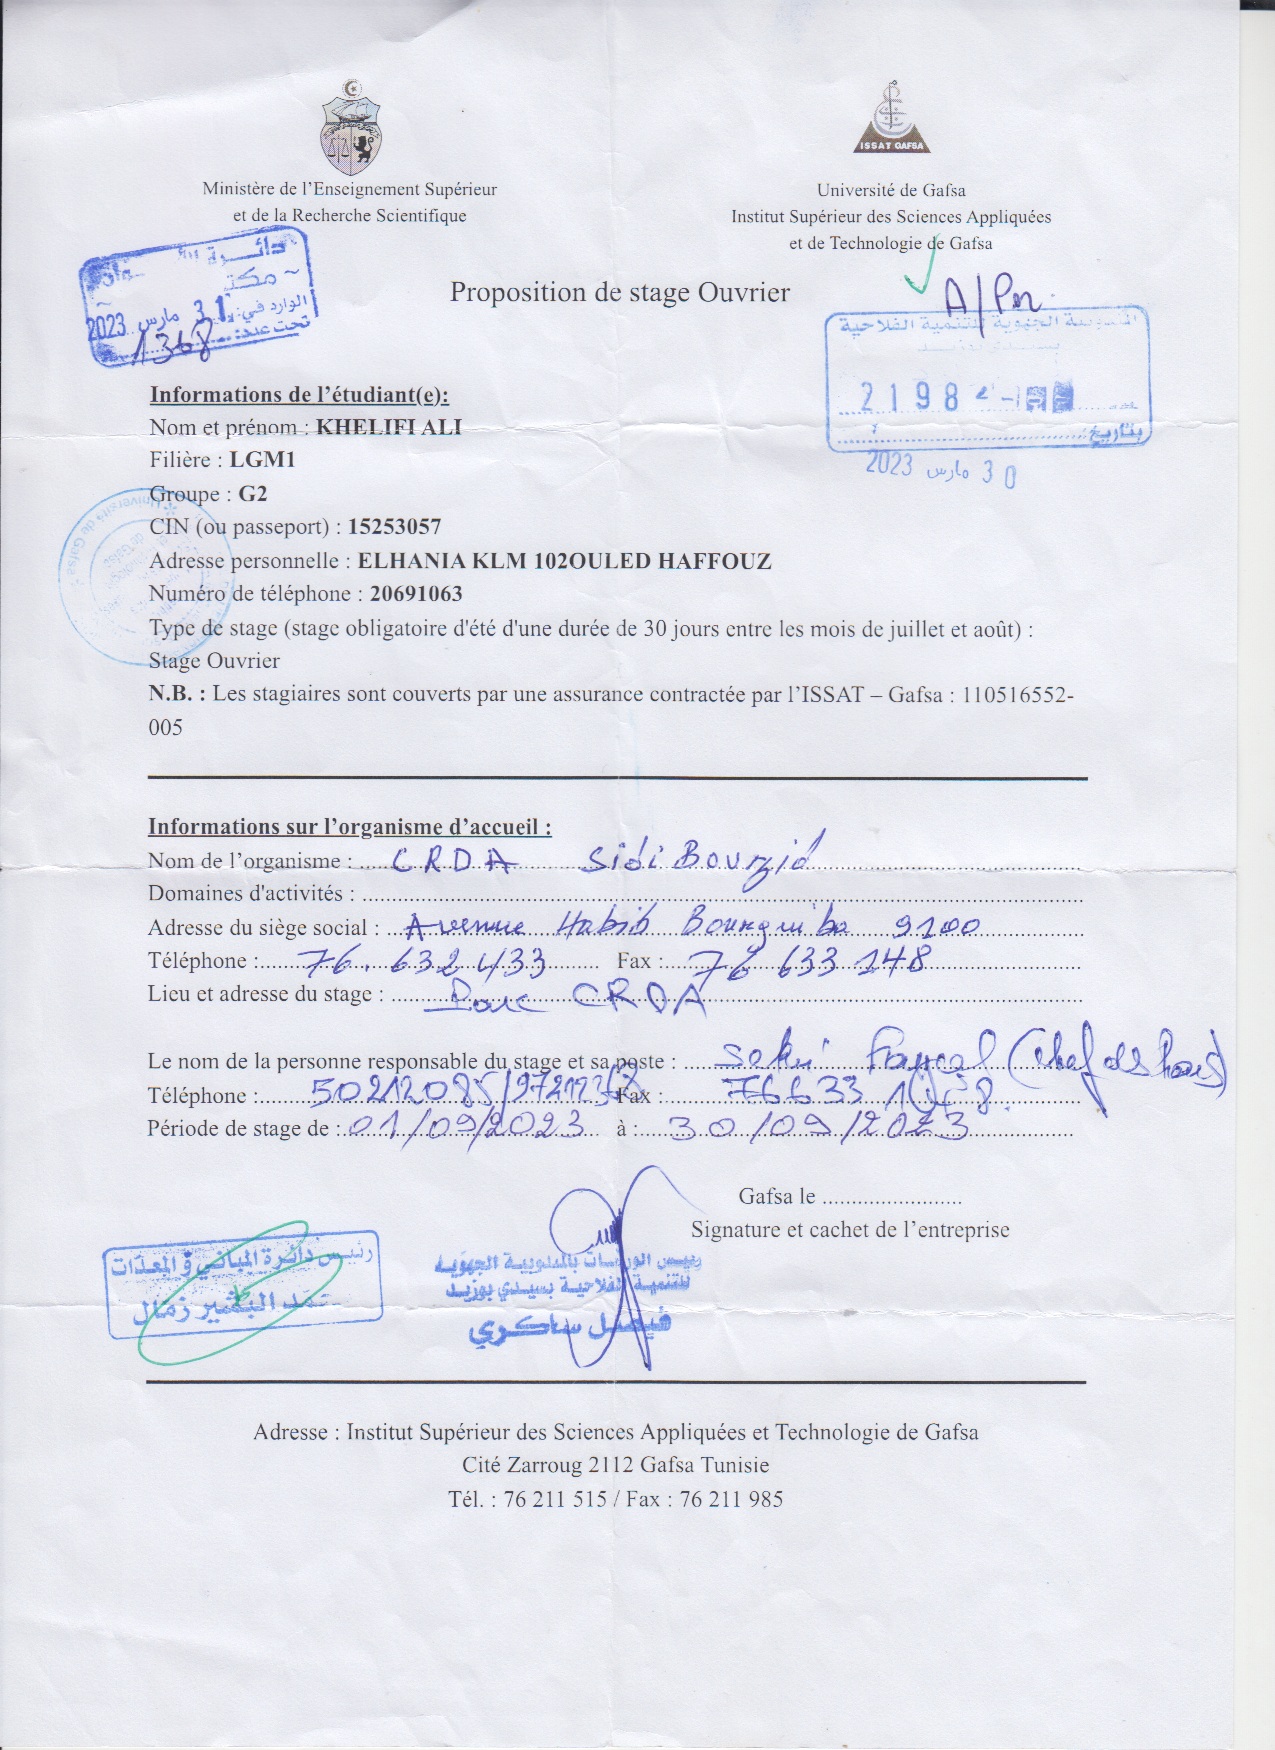 Ministère de l'Enseignement Supérieur
et de la Recherche Scientifique
ISSAT GAFSA
Université de Gafsa
Institut Supérieur des Sciences Appliquées
et de Technologie de Gafsa
دائرة
مكتب
الوارد في: 31 مارس 2023
تحت عدد: 1368
Proposition de stage Ouvrier
المندوبية الجهوية للتنمية الفلاحية
بسيدي بوزيد
2198
بتاريخ:
30 مارس 2023
Informations de l'étudiant(e):
Nom et prénom : KHELIFI ALI
Filière : LGM1
Groupe : G2
CIN (ou passeport) : 15253057
Adresse personnelle : ELHANIA KLM 102OULED HAFFOUZ
Numéro de téléphone : 20691063
Type de stage (stage obligatoire d'été d'une durée de 30 jours entre les mois de juillet et août) :
Stage Ouvrier
N.B. : Les stagiaires sont couverts par une assurance contractée par l'ISSAT – Gafsa : 110516552-
005
Université de Gafsa
Informations sur l'organisme d'accueil :
Nom de l'organisme : CRDA Sidi Bouzid
Domaines d'activités :
Adresse du siège social : Avenue Habib Bourguiba 9100
Téléphone : 76.632 433 Fax : 76 633 148
Lieu et adresse du stage : Parc CRDA
Le nom de la personne responsable du stage et sa poste : Fayçal (chef
Téléphone : 50212085/ Fax : 76633 148.
Période de stage de : 01/09/2023 à : 30/09/2023
Gafsa le
Signature et cachet de l'entreprise
رئيس دائرة المباني و المعدات
البشير زمال
رئيس الورشات بالمندوبية الجهوية
للتنمية الفلاحية بسيدي بوزيد
فيصل ساكري
Adresse : Institut Supérieur des Sciences Appliquées et Technologie de Gafsa
Cité Zarroug 2112 Gafsa Tunisie
Tél. : 76 211 515 / Fax : 76 211 985